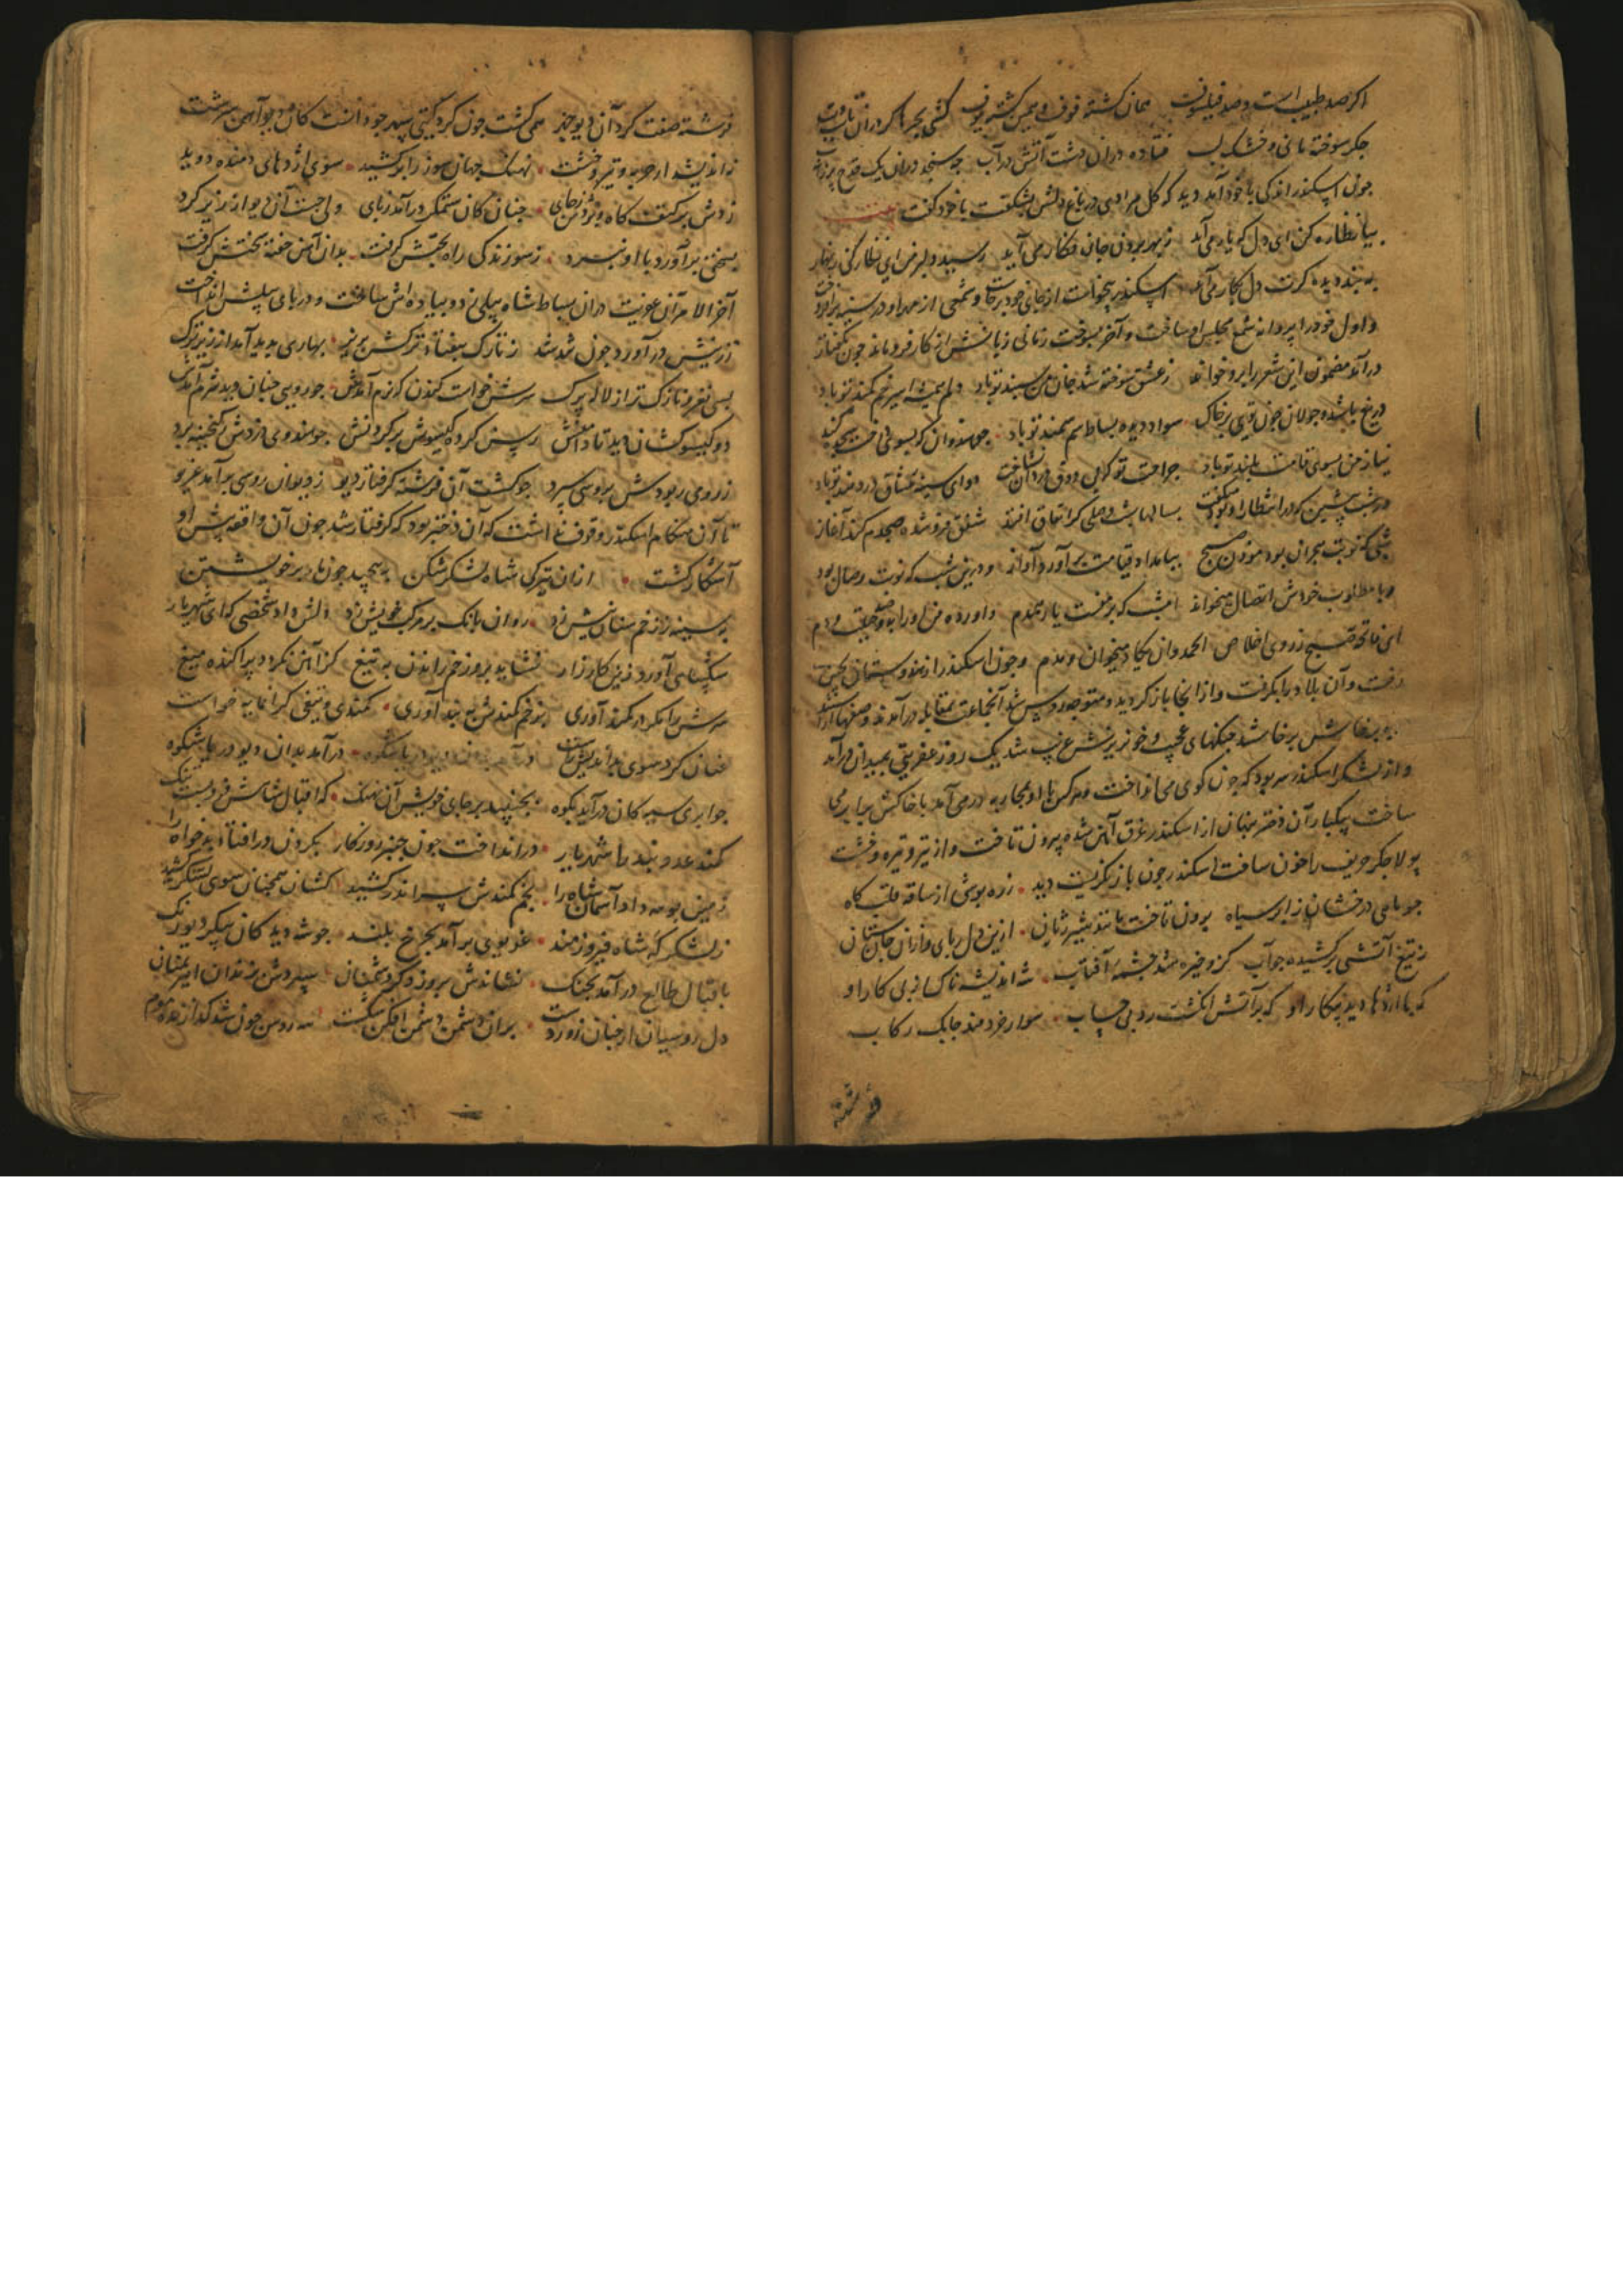 اکر صد طبیب است و صد فیلسوف همان کشته فوف و همین کشته یوف کشتی بحر
جکر سوخته مانی و خشک لب فتاده دران دشت آتش در آب جه سنجد دران یک قدح
جون اسکندر اندکی با خود آمد دید که کل مرادی در باغ دلش بشکفت با خود کفت
بیا نظاره کن ای دل که یار می آید ز بهر بردن جان فکار می آید رسید دلبر من ای نظارکی زنهار
به بند دیده کرت دل بکار می آید اسکندر بیخواست از جای خود برخاست و شمعی از مهر او در سینه برافروخت
و اول خود را پروانه شمع مجلس او ساخت و آخر بسوخت زمانی زبانش از کار فرو ماند جون بکفتار
در آمد مضمون این شعر را برو خواند ز عشق سوخته شد جان من سپند تو باد دلم همیشه اسیر خم کمند تو باد
دریغ باشد جولان جون تویی بر خاک سواد دیده بساط سم سمند تو باد
نیاز من بسوی قامت بلند تو باد جراحت تو دوای سینه عشاق دردمند تو باد
در شب پیشین که در انتظار او بود میکفت بسالها شب وصلی کر اتفاق افتد شفق فرو شده صبحدم کند آغاز
شبی که نوبت هجران بود موذن صبح ببامداد قیامت بر آورد آواز و درین شب که نوبت وصال بود
و با مطلوب خودش اتصال میخواند امشب که برمنست یار همدم
ای فاتحه صبح ز روی اخلاص الحمد وان یکاد میخوان و مدم و جون اسکندر از هندوستان بچین
رفت و آن بلاد را بکرفت و از انجا باز کردید و متوجه روس شد آنجماعت بمقابله در آمدند و صفها آراسته
به پرخاش برخاستند جنکهای عجیب و خونریزش غریب شد یک روز عفریتی بمیدان در آمد
و از لشکر اسکندر سر بود که جون کوی می انداخت و هر کس با او بمحاربه در می آمد با خاکش برابر می
ساخت یکبار آن دختر پنهان از اسکندر غرق آهن شده بیرون تاخت و از تیر و تیره و خشت
پولاد جکر حریف را خون ساخت اسکندر جون باز نکریست دید زره پوشی از ساقه قلب کاه
جو ماهی درخشان ز ابر سیاه برون تاخت مانند شیر ژیان ازین دل ربای و ازان جان ستان
ز تیغ آتشی برکشیده جو آب کزو خیره شد جشمه آفتاب شه اندیشه ناک از پی کار او
که با اژدها دید پیکار او که بر آتش انکشت زد بی حساب سوار خردمند جابک رکاب
فرشته
فرشته صفت کرد آن دیو جهر همی کشت جون کرد کیتی سپهر جو دانست کان دیو آهن سرشت
نه اندیشد از حربه و تیر و خشت نهنک جهان سوز را برکشید سوی اژدهای دمنده دوید
زدش بر کتف کاه و بردش ز جای جنان کان ستمکر در آمد ز پای ولی جست آن دیو از زیر کرد
بسختی برآورد با او نبرد ز سوزندکی راه بحثش کرفت بدان آهن خفته سختش کرفت
آخر الامر آن عفریت دران بساط شاه پیلی زد و پیاده اش ساخت و در پای پیلش انداخت
ز زینش در آورد جون تند شد ز تارک بیفتاد ترکش بزیر بهاری پدید آمد از زیر ترک
بسی نغز و نازک تر از لاله برک سرش خواست کندن که نرم آمدش جو رویی جنان دید شرم آمدش
دو کیسو کشان دید تا دامنش رسن کرد کیسوش بر کردنش جو هندوی دزدش بکنجینه برد
ز روی ربودش بروسی سپرد جو کشت آن فرشته کرفتار دیو ز دیوان روسی برآمد غریو
تا آن هنکام اسکندر وقوف نداشت که آن دختر بود که کرفتار شد جون آن واقعه پیش او
آشکار کشت ازان تیرکی شاه لشکر شکن به پیچید جون مار بر خویشتن
بر سینه زد زخم سنان پیش زد روان بانک بر مرکب خویش زد دلش داد شخصی که ای شهریار
سکبسای آورد زین کارزار نشاید بدو زخم راندن به تیغ کز آهن نکردد پراکنده میغ
سرش را مکر در کمند آوری بزخم کمندش به بند آوری کمندی و تیغی کرانمایه خواست
عنان کرد سوی بد اندیش راست در آمد بدان دیو دریا شکوه
جو ابری سیه کان در آید بکوه بجنبید بر جای خویش آن نهنک که اقبال شاهش فرو بست جنک
کمند عدو بند را شهریار در انداخت جون جنبر روزکار بکردن در افتاد بدخواه را
زمین بوسه داد آسمان شاه را بخم کمندش سر اندر کشید کشان همجنان سوی لشکر کشید
ز لشکرکه شاه فیروزمند غریوی برآمد بجرخ بلند جو شه دید کان پیکر دیورنک
باقبال طالع در آمد بجنک نشاندش بروز سپردش بزندان اهریمنان
دل روسیان از جنان زوردست بران دشمن دشمن افکن شکست شه روس جون شد کدازنده موم